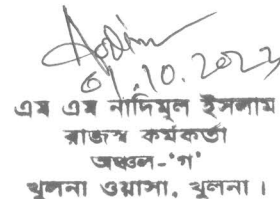 01.10.2023
এম এম নাদিমুল ইসলাম
রাজস্ব কর্মকর্তা
অঞ্চল-'গ'
খুলনা ওয়াসা, খুলনা।